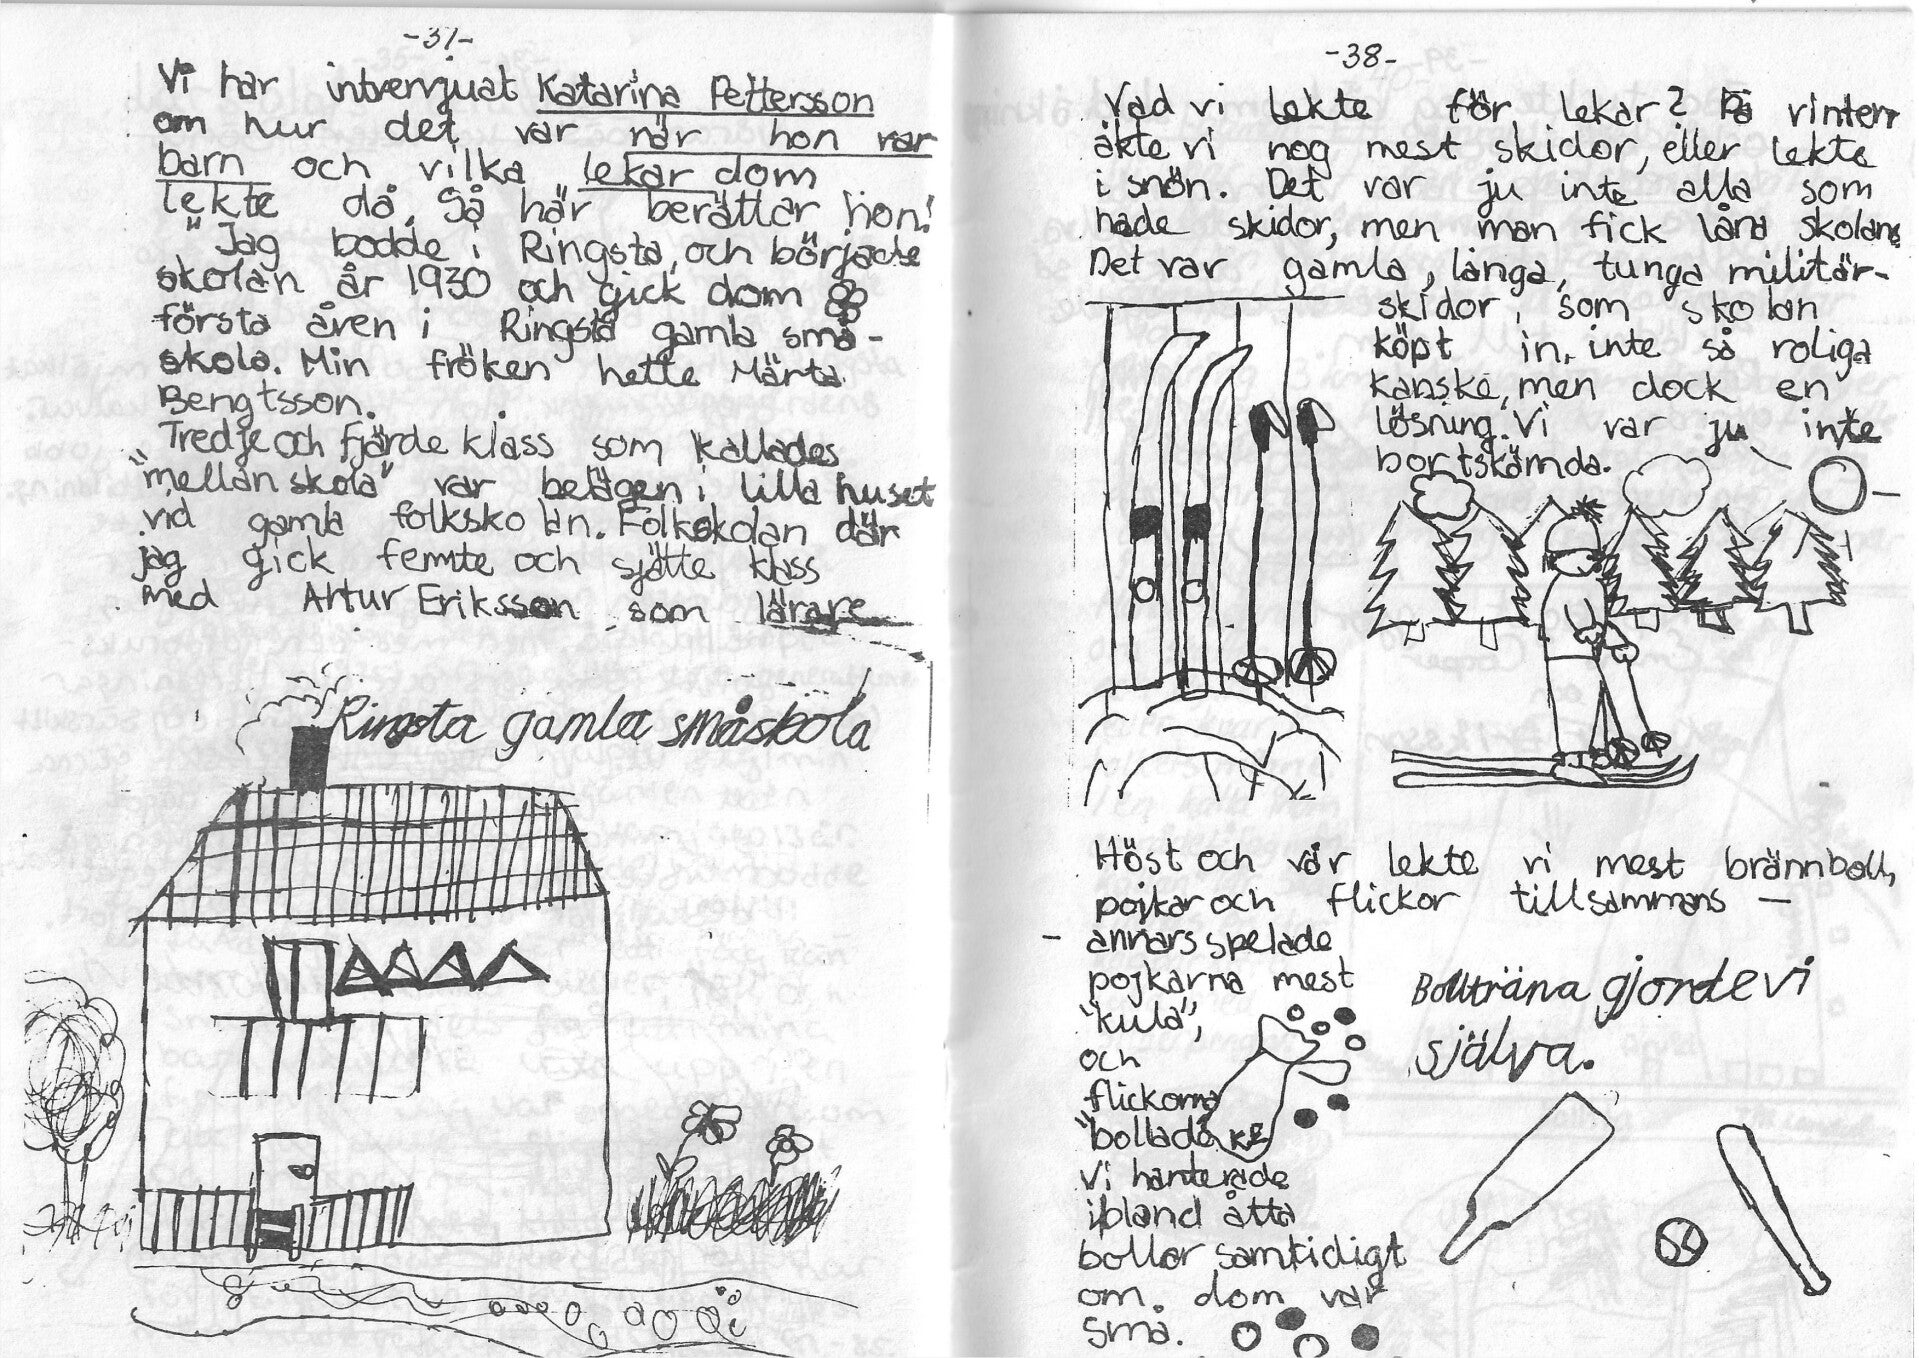 -37-
Vi har intvervjuat Katarina Pettersson
om hur det var när hon var
barn och vilka lekar dom
lekte då. Så här berättar hon!
"Jag bodde i Ringsta, och började
skolan år 1930 och gick dom
första åren i Ringsta gamla små-
skola. Min fröken hette Märta
Bengtsson.
Tredje och fjärde klass som kallades
"mellanskola" var belägen i lilla huset
vid gamla folkskolan. Folkskolan där
jag gick femte och sjätte klass
med Artur Eriksson som lärare
Ringsta gamla småskola
-38-
Vad vi lekte för lekar? På vintern
åkte vi nog mest skidor, eller lekte
i snön. Det var ju inte alla som
hade skidor, men man fick låna skolans
Det var gamla, långa, tunga militär-
skidor, som skolan
köpt in, inte så roliga
kanske, men dock en
lösning. Vi var ju inte
bortskämda.
Höst och vår lekte vi mest brännboll,
pojkar och flickor tillsammans -
- annars spelade
pojkarna mest
"kula",
och
flickorna
"bollade
vi hanterade
ibland åtta
bollar samtidigt
om. dom var
små.
Bollträna gjorde vi
själva.